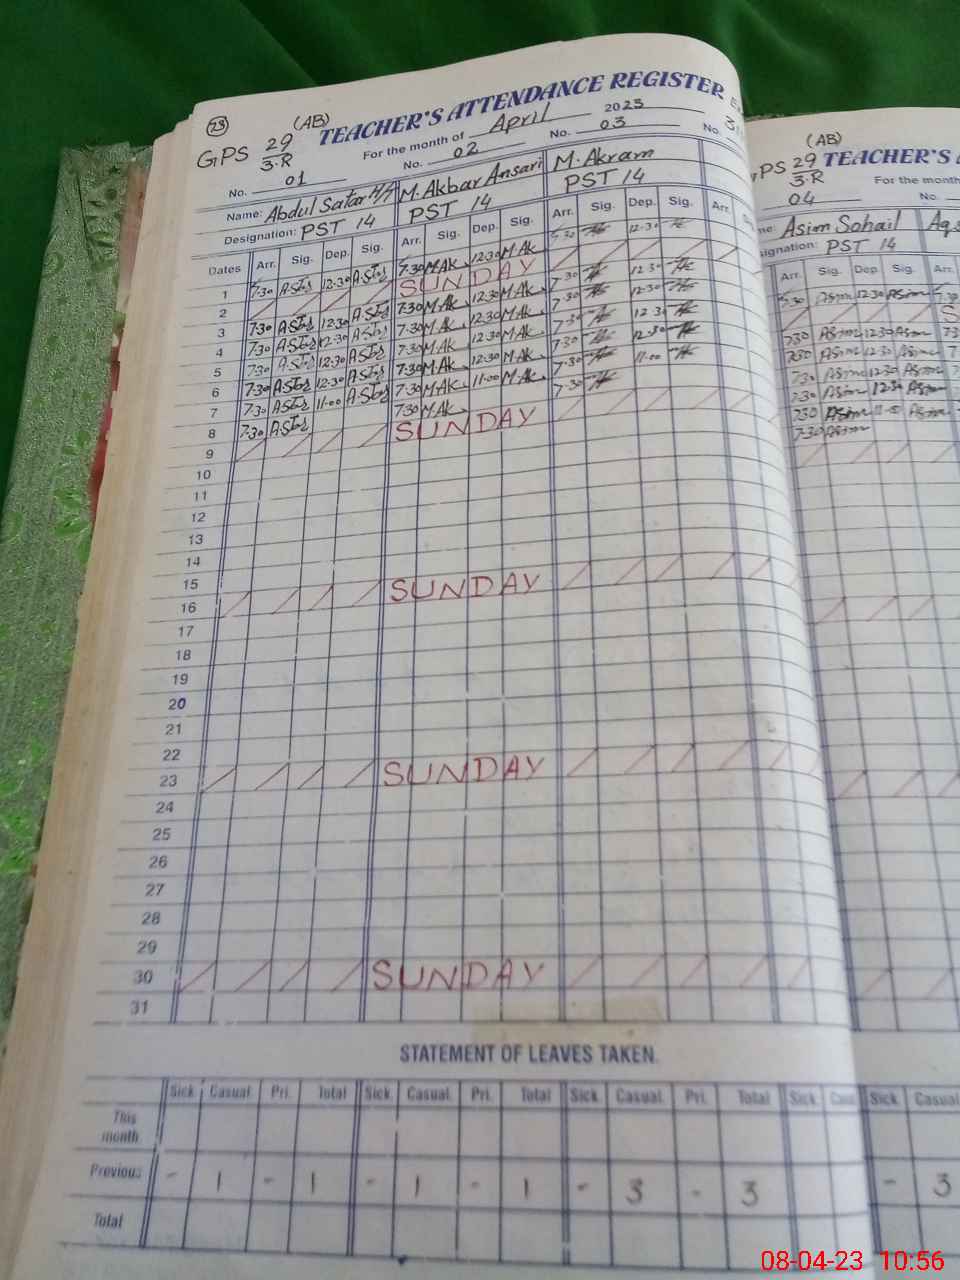 23
(AB)
GPS 29/3-R
TEACHER'S ATTENDANCE REGISTER
For the month of April 2023
No. 01 No. 02 No. 03 No.
Name: Abdul Satar M. Akbar Ansari M. Akram
Designation: PST 14 PST 14 PST 14
Dates Arr. Sig. Dep. Sig. Arr. Sig. Dep. Sig. Arr. Sig. Dep. Sig. Arr.
1 7-30 12-30 7-30 M.Ak 12-30 M.Ak 12-30
2 SUNDAY
3 7-30 12-30 7-30 M.Ak 12-30 M.Ak 7-30 12-30
4 7-30 12-30 7-30 M.Ak 12-30 M.Ak 7-30 12-30
5 7-30 12-30 7-30 M.Ak 12-30 M.Ak 7-30 12-30
6 7-30 12-30 7-30 M.Ak 12-30 M.Ak 7-30 12-30
7 7-30 11-00 7-30 M.Ak 11-00 M.Ak 7-30 11-00
8 7-30 7-30 M.Ak 7-30
9 SUNDAY
10
11
12
13
14
15
16 SUNDAY
17
18
19
20
21
22
23 SUNDAY
24
25
26
27
28
29
30 SUNDAY
31
STATEMENT OF LEAVES TAKEN.
Sick Casual Pri. Total Sick. Casual. Pri. Total Sick. Casual. Pri. Total Sick
This month
Previous - 1 - 1 - 1 - 1 - 3 - 3
Total
(AB)
29/3-R
TEACHER'S
For the month
04 No.
Asim Sohail
PST 14
Arr. Sig. Dep. Sig. Arr.
Asim 12-30 Asim
7-30 Asim 12-30 Asim
7-30 Asim 12-30 Asim
7-30 Asim 12-30 Asim
7-30 Asim 12-30 Asim
7-30 Asim Asim
7-30 Asim
Sick Casual
- 3
08-04-23 10:56